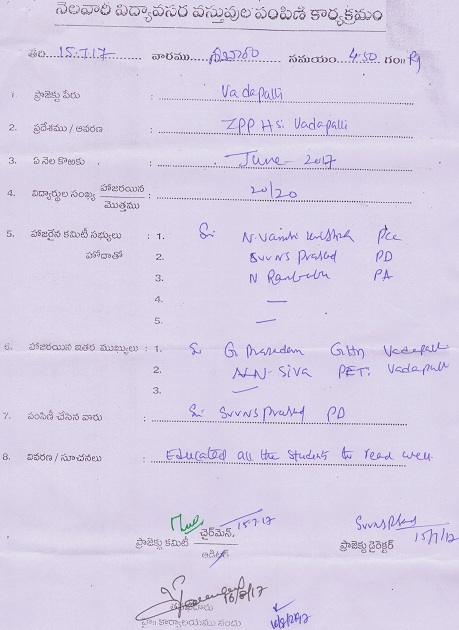 నెలవారీ విద్యావసర వస్తువుల పంపిణీ కార్యక్రమం
తేది. 15.7.17 వారము సమయం 4.50 గం॥
1. ప్రాజెక్టు పేరు : Vadapalli
2. ప్రదేశము / ఆవరణ : ZPP HS: Vadapalli
3. ఏ నెల కొఱకు : June - 2017
4. విద్యార్థుల సంఖ్య హాజరయిన / మొత్తము : 20/20
5. హాజరైన కమిటీ సభ్యులు : 1. Sri N. Vamshi PCC
హోదాతో 2. SVVNS Prasad PD
3. N Rambabu PA
4. —
5. —
6. హాజరయిన ఇతర ముఖ్యులు : 1. Sri G. GHM Vadapalli
2. N.N. Siva PET. Vadapalli
3. —
7. పంపిణీ చేసిన వారు : Sri SVVNS Prasad PD
8. వివరణ / సూచనలు : Educated all the students to read well.
ప్రాజెక్టు కమిటీ చైర్‌మెన్ / ఆడిటర్ 15.7.17
SVVNS Prasad 15/7/17
ప్రాజెక్టు డైరెక్టర్
16/8/17
కార్యాలయము నందు